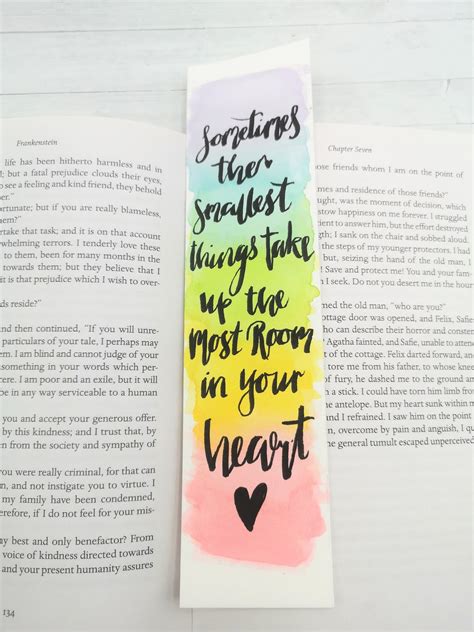 Frankenstein
life has been hitherto harmless and in
; but a fatal prejudice clouds their eyes,
to see a feeling and kind friend, they behold
er."
ortunate; but if you are really blameless,
them?"
ertake that task; and it is on that account
whelming terrors. I tenderly love these
n to them, been for many months in the
towards them; but they believe that I
it is that prejudice which I wish to over-
ds reside?"
and then continued, "If you will unre-
particulars of your tale, I perhaps may
m. I am blind and cannot judge of your
something in your words which per-
cere. I am poor and an exile, but it will
e in any way serviceable to a human
you and accept your generous offer.
by this kindness; and I trust that, by
en from the society and sympathy of
you were really criminal, for that can
and not instigate you to virtue. I
my family have been condemned,
therefore, if I do not feel for your mis-
my best and only benefactor? From
voice of kindness directed towards
and your present humanity assures
134
Sometimes
the
smallest
things take
up the
most Room
in your
heart
Chapter Seven
those friends whom I am on the point of
names and residence of those friends?"
thought, was the moment of decision, which
stow happiness on me forever. I struggled
to answer him, but the effort destroyed
sank on the chair and sobbed aloud.
the steps of my younger protectors. I had
but, seizing the hand of the old man, I
Save and protect me! You and your family
seek. Do not you desert me in the hour
ed the old man, "who are you?"
cottage door was opened, and Felix, Safie,
who can describe their horror and conster-
Agatha fainted, and Safie, unable to attend
cottage. Felix darted forward, and
me from his father, to whose knees
of fury, he dashed me to the
with a stick. I could have torn him limb from limb
the antelope. But my heart sank
and I refrained. I saw him on the point
, overcome by pain and anguish, I quitted
the general tumult escaped unperceived